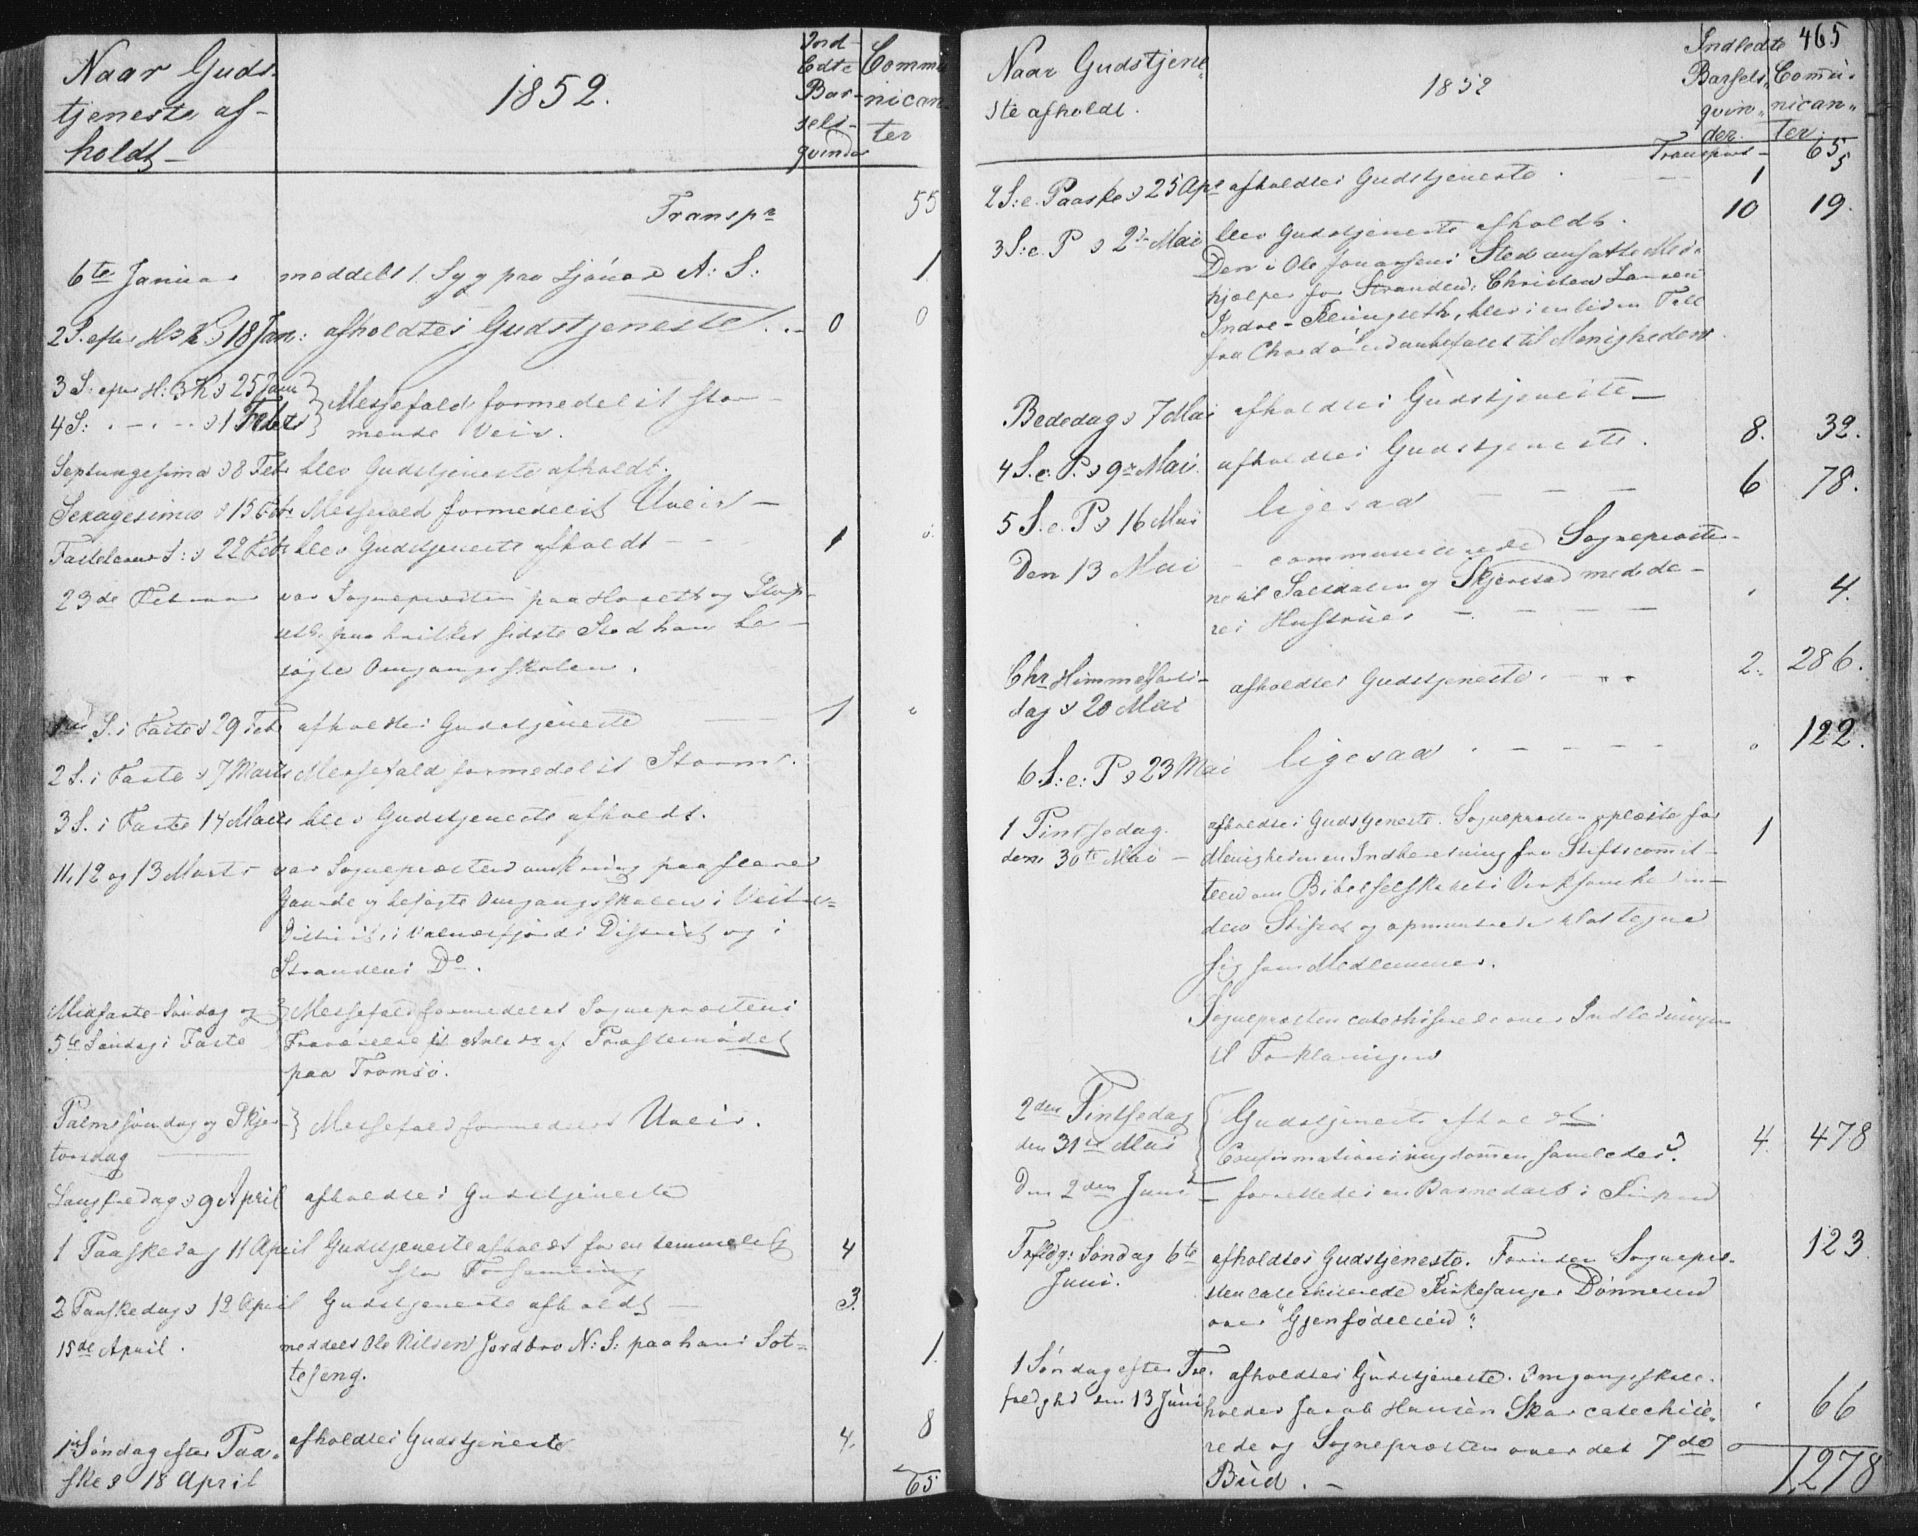 Naar Guds-
tjeneste af-
holdt
1852.
Ind-
ledte
Bar-
sels-
qvinder
Commu
nican-
ter
Transpr 55
6te Januar meddelt 1 Syg paa A: S: 1
2 S. efter H3K s 18 Jan: afholdtes Gudstjeneste. 0 0
3 S: efter H: 3 K s 25 Jan
4 S: - - s 1 Febr
Messefald formedelst stor-
mende Veir.
Septuagesima s 8 Febr blev Gudstjeneste afholdt.
Sexagesima s 15 Febr Messefald formedelst Uveir -
Fastelavns S: s 22 Febr blev Gudstjeneste afholdt - 1
23de Februar var Sognepresten paa og
paa hvilket sidste Sted han be-
søgte Omgangsskolen.
1ste S. i Faste s 29 Febr afholdtes Gudstjeneste 1
2 S. i Faste s 7 Marts Messefald formedelst Storm.
3 S. i Faste 14 Marts blev Gudstjeneste afholdt.
11, 12 og 13 Marts var Sognepresten paa flere
Gaarde og besøgte Omgangsskolen i
District, i Valnesfjords District og i
Strandens Do.
Midfaste Søndag og Messefald formedelst Sogneprestens
5te Søndag i Faste Fraværelse i Anledn af Præstemødet
paa Tromsø.
Palmesøndag og Skjær-
torsdag
Messefald formedelst Uveir.
Langfredag s 9 April afholdtes Gudstjeneste
1 Paaskedag 11 April Gudstjeneste afholdt for en temmelig 4
stor Forsamling
2 Paaskedag s 12 April Gudstjeneste afholdt - 3.
15de April. meddelt Ole Nilsen Jordbro N: S: paa hans Sot- 1.
teseng.
1ste Søndag efter Paa-
ske s 18 April
afholdtes Gudstjeneste 4. 8
65
465
Naar Gudstjene
ste afholdt.
1852
Indledte
Barsels
qvin-
der.
Comu-
nican-
ter.
Transport - 65
2 S: e. Paaske s 25 Apr afholdtes Gudstjeneste. 1 5
3 S: e P s 2d Mai blev Gudstjeneste afholdt. 10 19.
Den i Ole Sted ansatte Med-
hjælper for Stranden, Christen Larsen
Indre- blev i en liden Tale
fra Chordøren anbefalet til Menigheden.
Bededag s 7 Mai afholdtes Gudstjeneste -
4 S. e. P. s 9de Mai. afholdtes Gudstjeneste. 8. 32.
5 S. e. P s 16 Mai ligesaa - - - 6 78.
Den 13 Mai - communicerede Sogneprestene
til Saltdalen og Skjerstad med de-
res Hustruer - 4.
Chr Himmelfarts-
dag s 20 Mai
afholdtes Gudstjeneste. 2. 286.
6 S: e: P s 23 Mai ligesaa 122.
1 Pintsedag.
den 30te Mai -
afholdtes Gudstjeneste. Sognepresten oplæste for 1
Menigheden en Indberetning fra Stiftscomit-
teen om Bibelselskabets Virksomhed in-
den Stiftet og opmuntrede til at tegne
sig som Medlemmer.
Sognepresten catechiserede over Indledningen
til Forklaringen
2den Pintsedag
den 31te Mai
Gudstjeneste afholdt.
Confirmationsungdommen samledes. 4. 478
Den 2den Juni - forrettedes en Barnedaab i
Trefldg: Søndag 6te
Juni.
afholdtes Gudstjeneste. Foruden Sognepre- 123
sten catechiserede Kirkesanger Dønnesen
over "Gjenfødelsen".
1 Søndag efter Tre-
foldghd den 13 Juni
afholdtes Gudstjeneste. Omgangsskole-
holder Jacob Hansen Skar catechise- 66
rede og Sognepresten over det 7de
Bud. -
1278